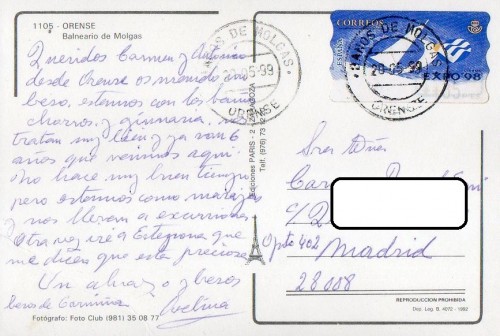 1105 - ORENSE
Balneario de Molgas
Queridos Carmen y Antonio
desde Orense os mando un
beso, estamos con los baños
chorros, y gimnasia, nos
tratan muy bien y ya son 6
años que venimos aquí
No hace muy buen tiempo
pero estamos como marajás
y nos llevan a excursiones
Otra vez iré a Estepona que
me dicen que está preciosa
Un abrazo y besos
besos de Carmiña Avelina
Fotógrafo: Foto Club (981) 35 08 77
Ediciones PARIS - ZARAGOZA
Telf. (976) 73
BAÑOS DE MOLGAS
20-05-99
ORENSE
CORREOS
ESPAÑA
EXPO'98
BAÑOS DE MOLGAS
20-05-99
ORENSE
Sra Dña
C/
Apto 402 Madrid
28008
REPRODUCCION PROHIBIDA
Dep. Leg. B. 4072 - 1992